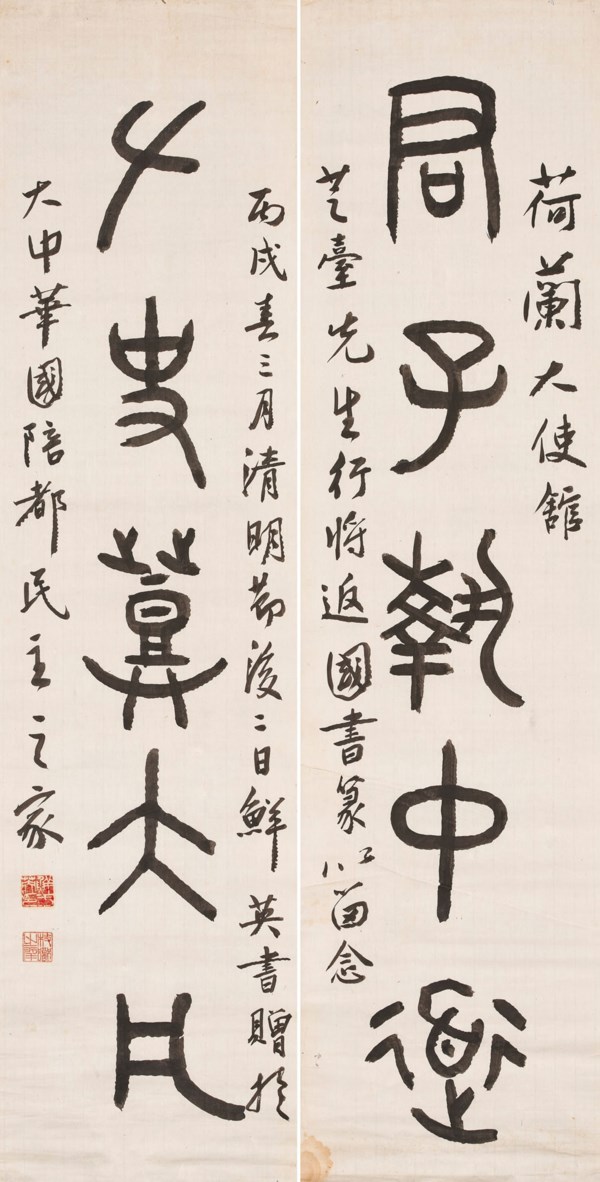 荷蘭大使館
君子執中道
芝臺先生行将返國書篆以留念
丙戌春三月清明節後二日鮮英書贈於
史大凡
大中華國陪都民主之家